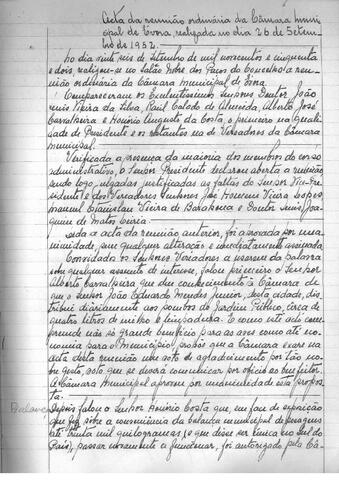 Acta da reunião ordinária da Câmara Muni-
cipal de Évora, realizada no dia 26 de Setem-
bro de 1952.
No dia vinte seis de Setembro de mil novecentos e cinquenta
e dois, realizou-se no Salão Nobre dos Paços do Concelho a reu-
nião ordinária da Câmara Municipal de Évora.
Compareceram os Excelentíssimos Senhores Doutor João
Luís Vieira da Silva, Raúl Calado de Almeida, Alberto José
Carvalheira e Honório Augusto da Costa, o primeiro na quali-
dade de Presidente e os restantes na de Vereadores da Câmara
Municipal.
Verificada a presença da maioria dos membros do corpo
administrativo, o Senhor Presidente declarou aberta a reunião
sendo logo julgadas justificadas as faltas do Senhor Vice-Pre-
sidente e dos Vereadores Senhores José Lopes
Manuel Vieira de Barahona e Doutor Luís Joa-
quim de Matos
Lida a acta da reunião anterior, foi aprovada por una-
nimidade, sem qualquer alteração e imediatamente assinada.
Convidados os Senhores Vereadores a usarem da palavra
sem qualquer assunto de interesse, falou primeiro o Senhor
Alberto Carvalheira que deu conhecimento à Câmara de
que o Senhor João Eduardo Mendes Junior, desta cidade, dis-
tribui diariamente aos pombos do Jardim Público, cerca de
quatro litros de milho e trinçadura. E como este acto com-
preende não só grande benefício para as aves como até eco-
nomia para o Município, propôs que a Câmara exare na
acta desta reunião um voto de agradecimento por tão no-
bre gesto, voto que se deverá comunicar por ofício ao benfeitor.
A Câmara Municipal aprovou por unanimidade esta propos-
ta.
Balança Depois falou o Senhor Honório Costa que, em face da exposição
que fez sobre a conveniência da balança municipal de pesagens
até trinta mil quilogramas, (o que disse ser única no Sul do
País), passar novamente a funcionar, foi autorizado pela Câ-